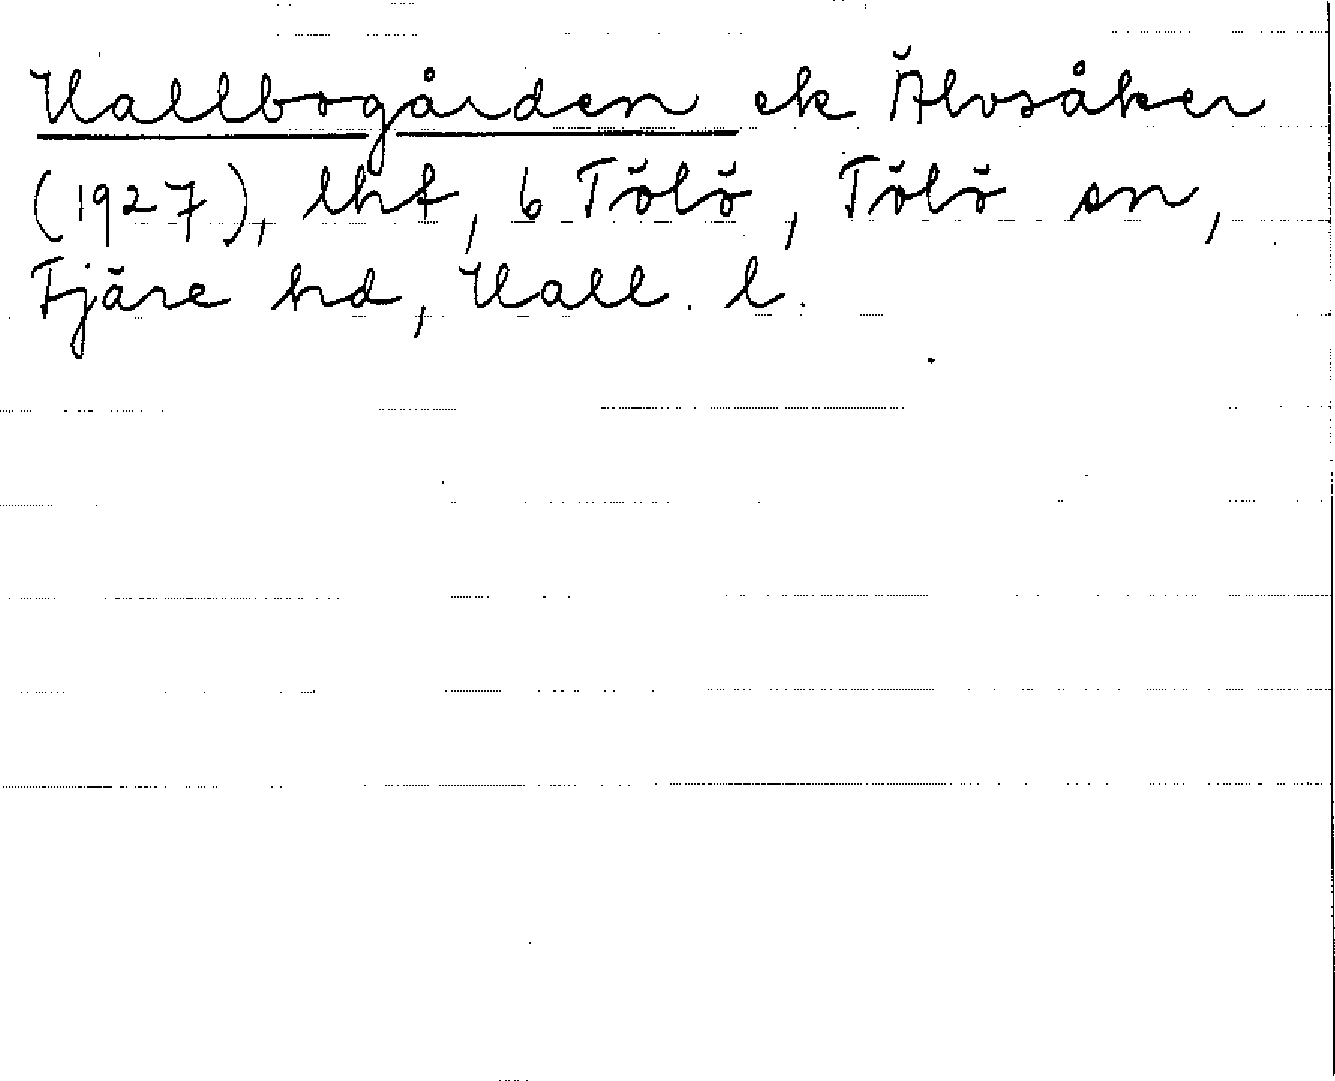 Hallbogården ek Älvsåker
(1927), lht, 6 Tölö, Tölö sn,
Fjäre hd, Hall. l.